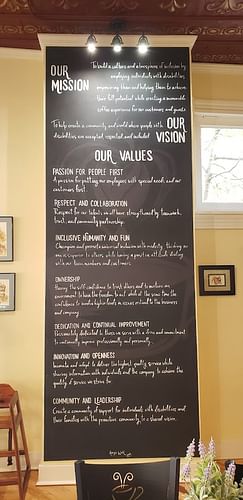 OUR
MISSION
To build a culture and atmosphere of inclusion by
employing individuals with disabilities,
empowering them and helping them to achieve
their full potential while creating a memorable
coffee experience for our customers and guests
To help create a community and world where people with
disabilities are accepted, respected and included
OUR
VISION
OUR VALUES
PASSION FOR PEOPLE FIRST
A passion for putting our employees with special needs and our
customers first.
RESPECT AND COLLABORATION
Respect for our talents we all have strengthened by teamwork,
trust, and community partnership.
INCLUSIVE HUMANITY AND FUN
Champion and promote universal inclusion with modesty, thinking no
one is superior to others while having a positive attitude dealing
with our team members and customers.
OWNERSHIP
Having the self confidence to trust others and to nurture an
environment to have the freedom to act while at the same time the
confidence to involve higher levels in issues critical to the business
and company.
DEDICATION AND CONTINUAL IMPROVEMENT
Passionately dedicated to those we serve with a drive and commitment
to continually improve professionally and personally.
INNOVATION AND OPENNESS
Innovate and adapt to deliver the highest quality service while
sharing information with individuals and the company to achieve the
quality of service we strive for.
COMMUNITY AND LEADERSHIP
Create a community of support for individuals with disabilities and
their families with the proactive community to a shared vision.